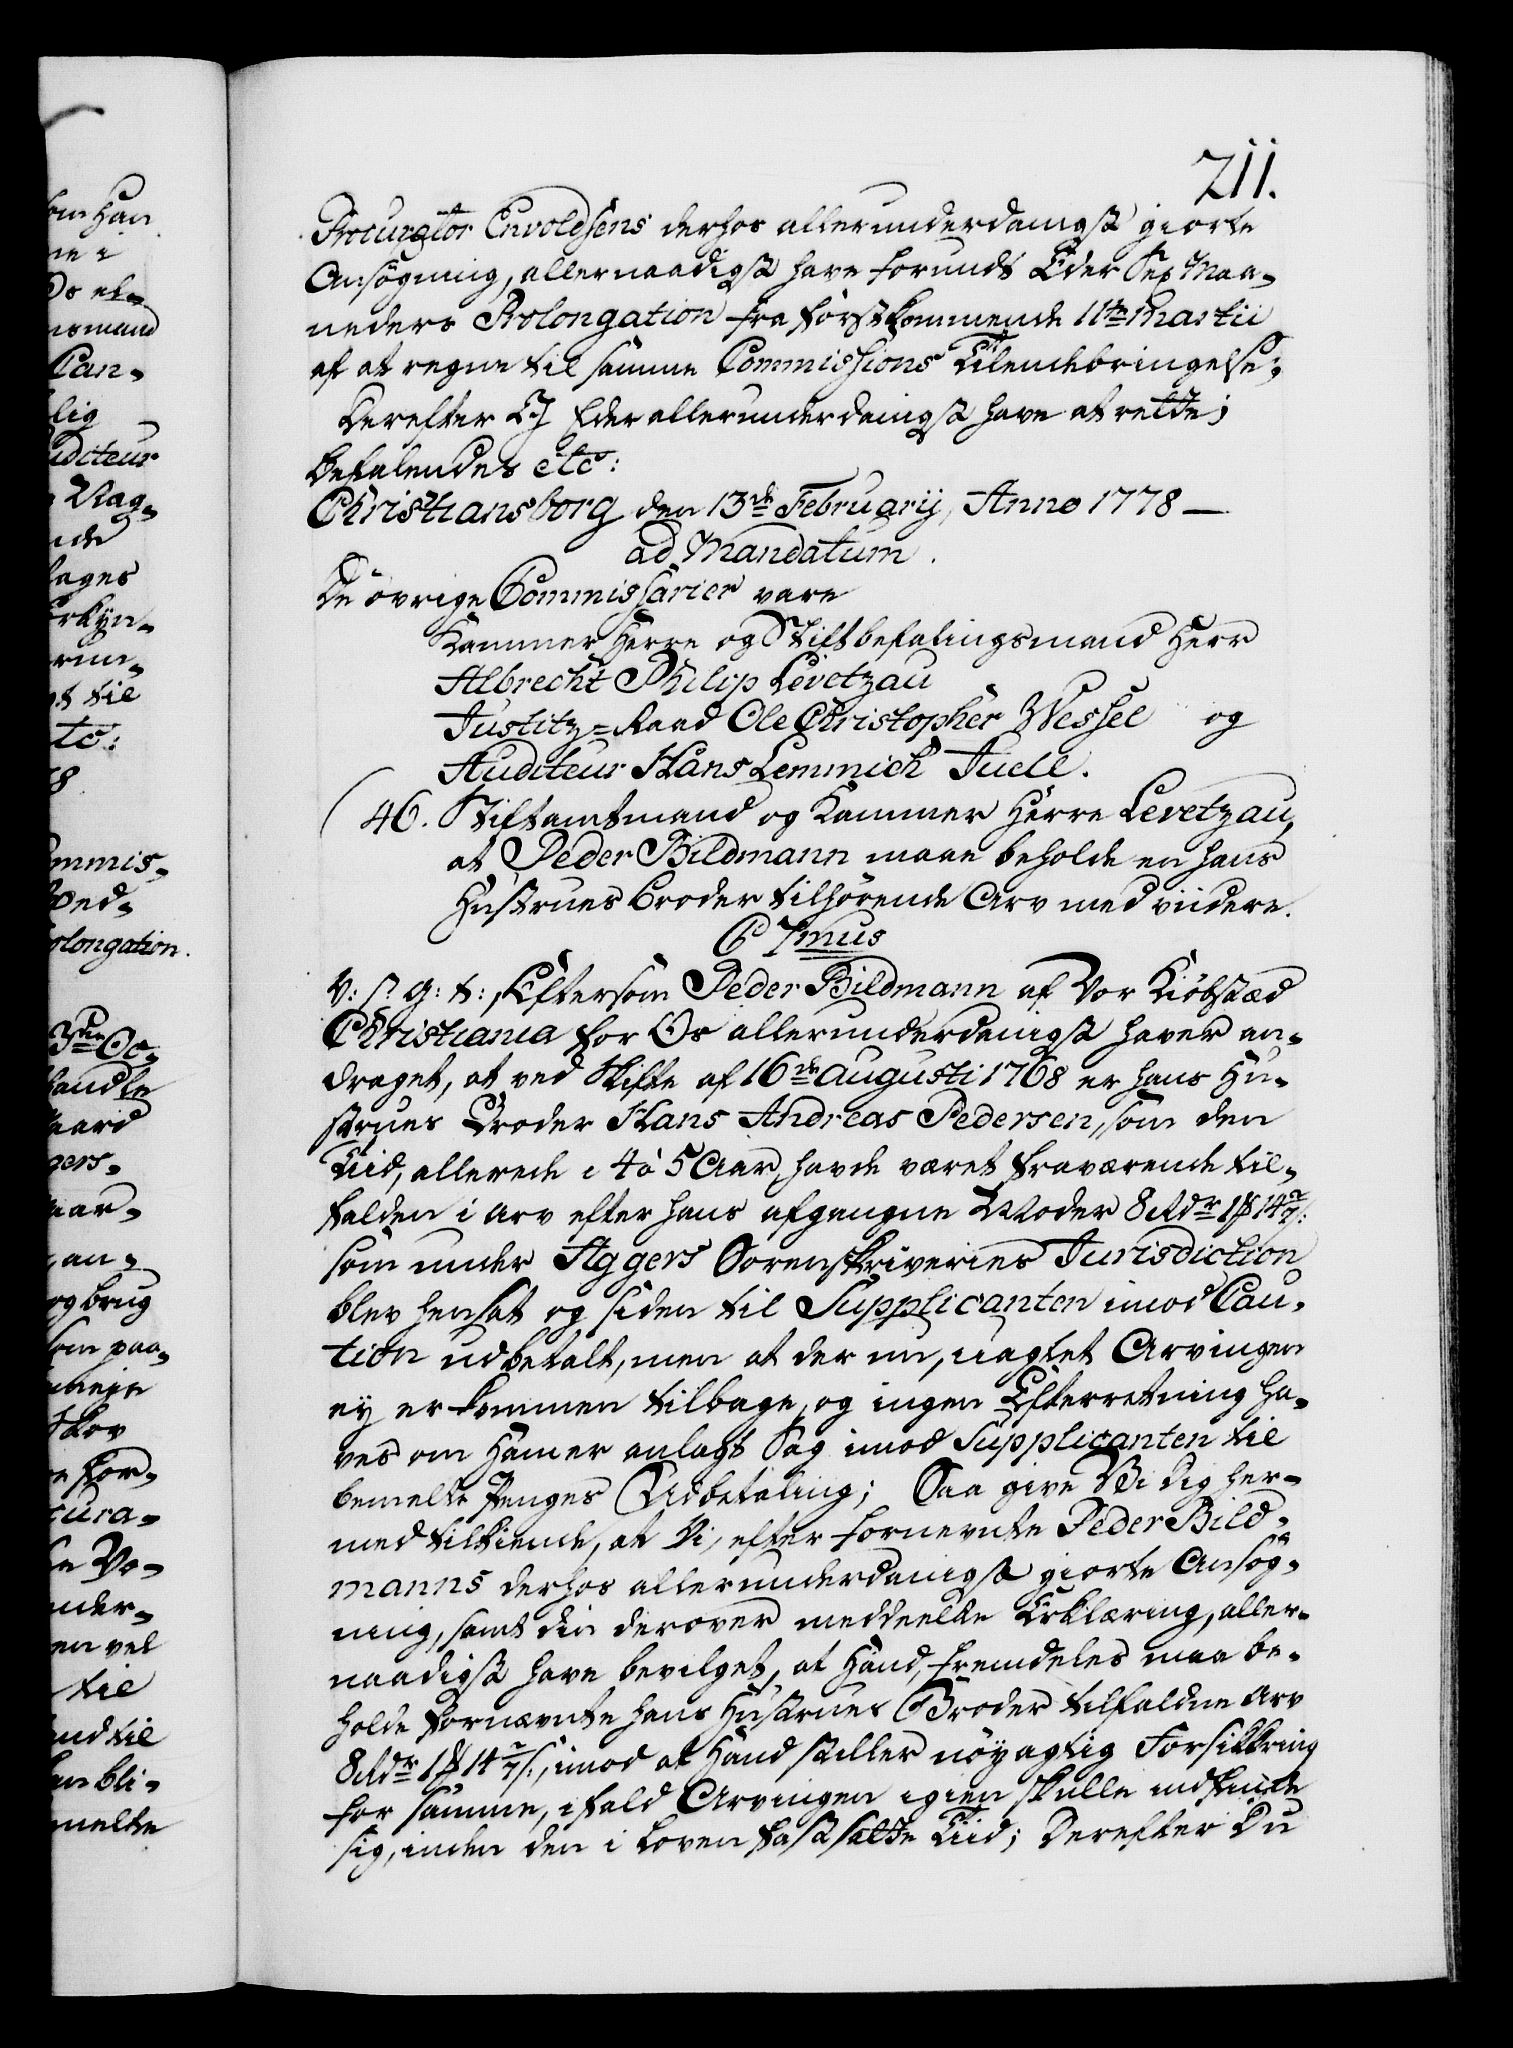 211.
Procurator Envoldsens derhos allerunderdanigst giorte
Ansögning, allernaadigst have forundt Eder Sex Maa-
neders Prolongation fra förstkommende 11te Martii
af at regne til samme Commissions Tilendebringelse;
Derefter I Eder allerunderdanigst have at rette;
Befalendes etc:
Christiansborg den 13de Februarij, Anno 1778 —
ad Mandatum.
De övrige Commissarier vare
Kammer Herre og Stiftbefalingsmand Herr
Albrecht Philip Levetzau
Justitz-Raad Ole Christopher Wessel og
Auditeur Hans Lemmich Juell.
46. Stiftamtmand og Kammer Herre Levetzau,
at Peder Bildmann maae beholde en hans
Hustrues Broder tilhörende Arv med viidere.
C 7mus
V: S: G: t:, Eftersom Peder Bildmann af Vor Kiöbstæd
Christiania for Os allerunderdanigst haver an-
draget, at ved Skifte af 16de Augusti 1768 er hans Hu-
strues Broder Hans Andreas Pedersen, som den
Tiid, allerede i 4 à 5 Aar, havde været fraværende til-
falden i Arv efter hans afgangne Moder 8 Rdr 1 ₰ 14 2/7 s:
som under Aggers Sorenskriveries Jurisdiction
blev hensat og siden til Supplicanten imod Cau-
tion udbetalt, men at der nu, uagtet Arvingen
ey er kommen tilbage, og ingen Efterretning ha-
ves om Ham er anlagt Sag imod Supplicanten til
bemelte Penges Udbetaling; Saa give Vi dig her-
med tilkiende, at Vi, efter fornevnte Peder Bild-
manns derhos allerunderdanigst giorte Ansög-
ning, samt din derover meddeelte Erklæring, aller-
naadigst have bevilget, at Hand, fremdeles maa be-
holde fornævnte hans Hustrues Broder tilfaldne Arv
8 Rdr 1 ₰ 14 2/7 s:, imod at Hand stiller nöyagtig Forsikkring
for samme, ifald Arvingen igien skulle indfinde
sig, inden den i Loven fastsatte Tiid; Derefter Du